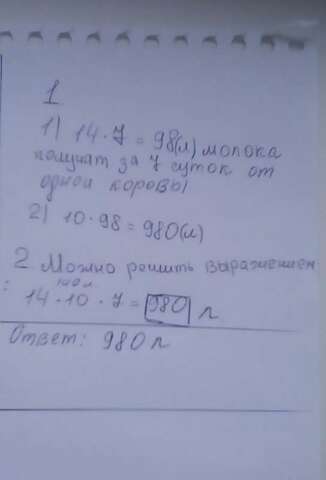 1
1) 14 · 7 = 98(л) молока
получат за 7 суток от
одной коровы
2) 10 · 98 = 980(л)
2 Можно решить выражением
:
140 л.
14 · 10 · 7 = 980 л
Ответ: 980 л